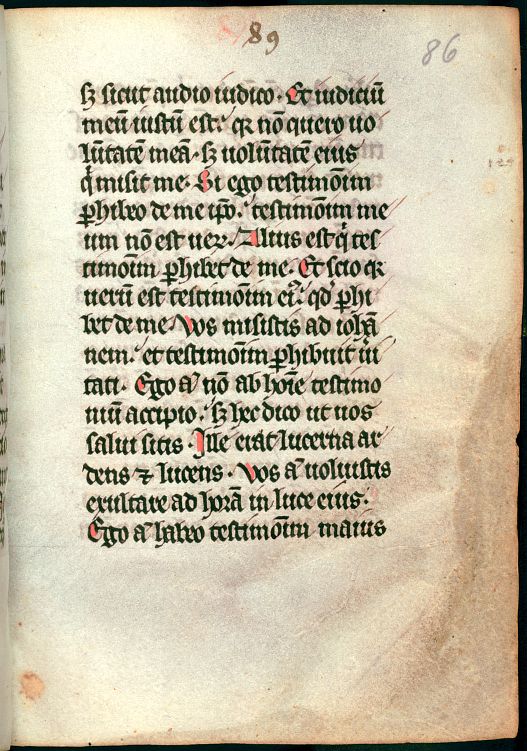 89
86
sꝫ sicut audio iudico. Et iudiciū
meū iustū est. qꝛ nō quero uo
lūtatē meā. sꝫ uolūtatē eius
q̇ misit me. Si ego testimōiū
ꝑhibeo de me ip̄o. testimōiū me
um nō est uer. Alius est q̇ tes
timōiū ꝑhibet de me. Et scio qꝛ
uerū est testimōiū ei᷒. qd̓ ꝑhi
bet de me. Vos misistis ad iohā
nem. et testimōiū ꝑhibuit ūi
tati. Ego aͫ nō ab hoīe testimo
niū accipio. sꝫ hec dico ut uos
salui sitis. Ille erat lucerna ar
dens ⁊ lucens. Vos aͫ uoluistis
exultare ad horā in luce eius.
Ego aͫ habeo testimōiū maius